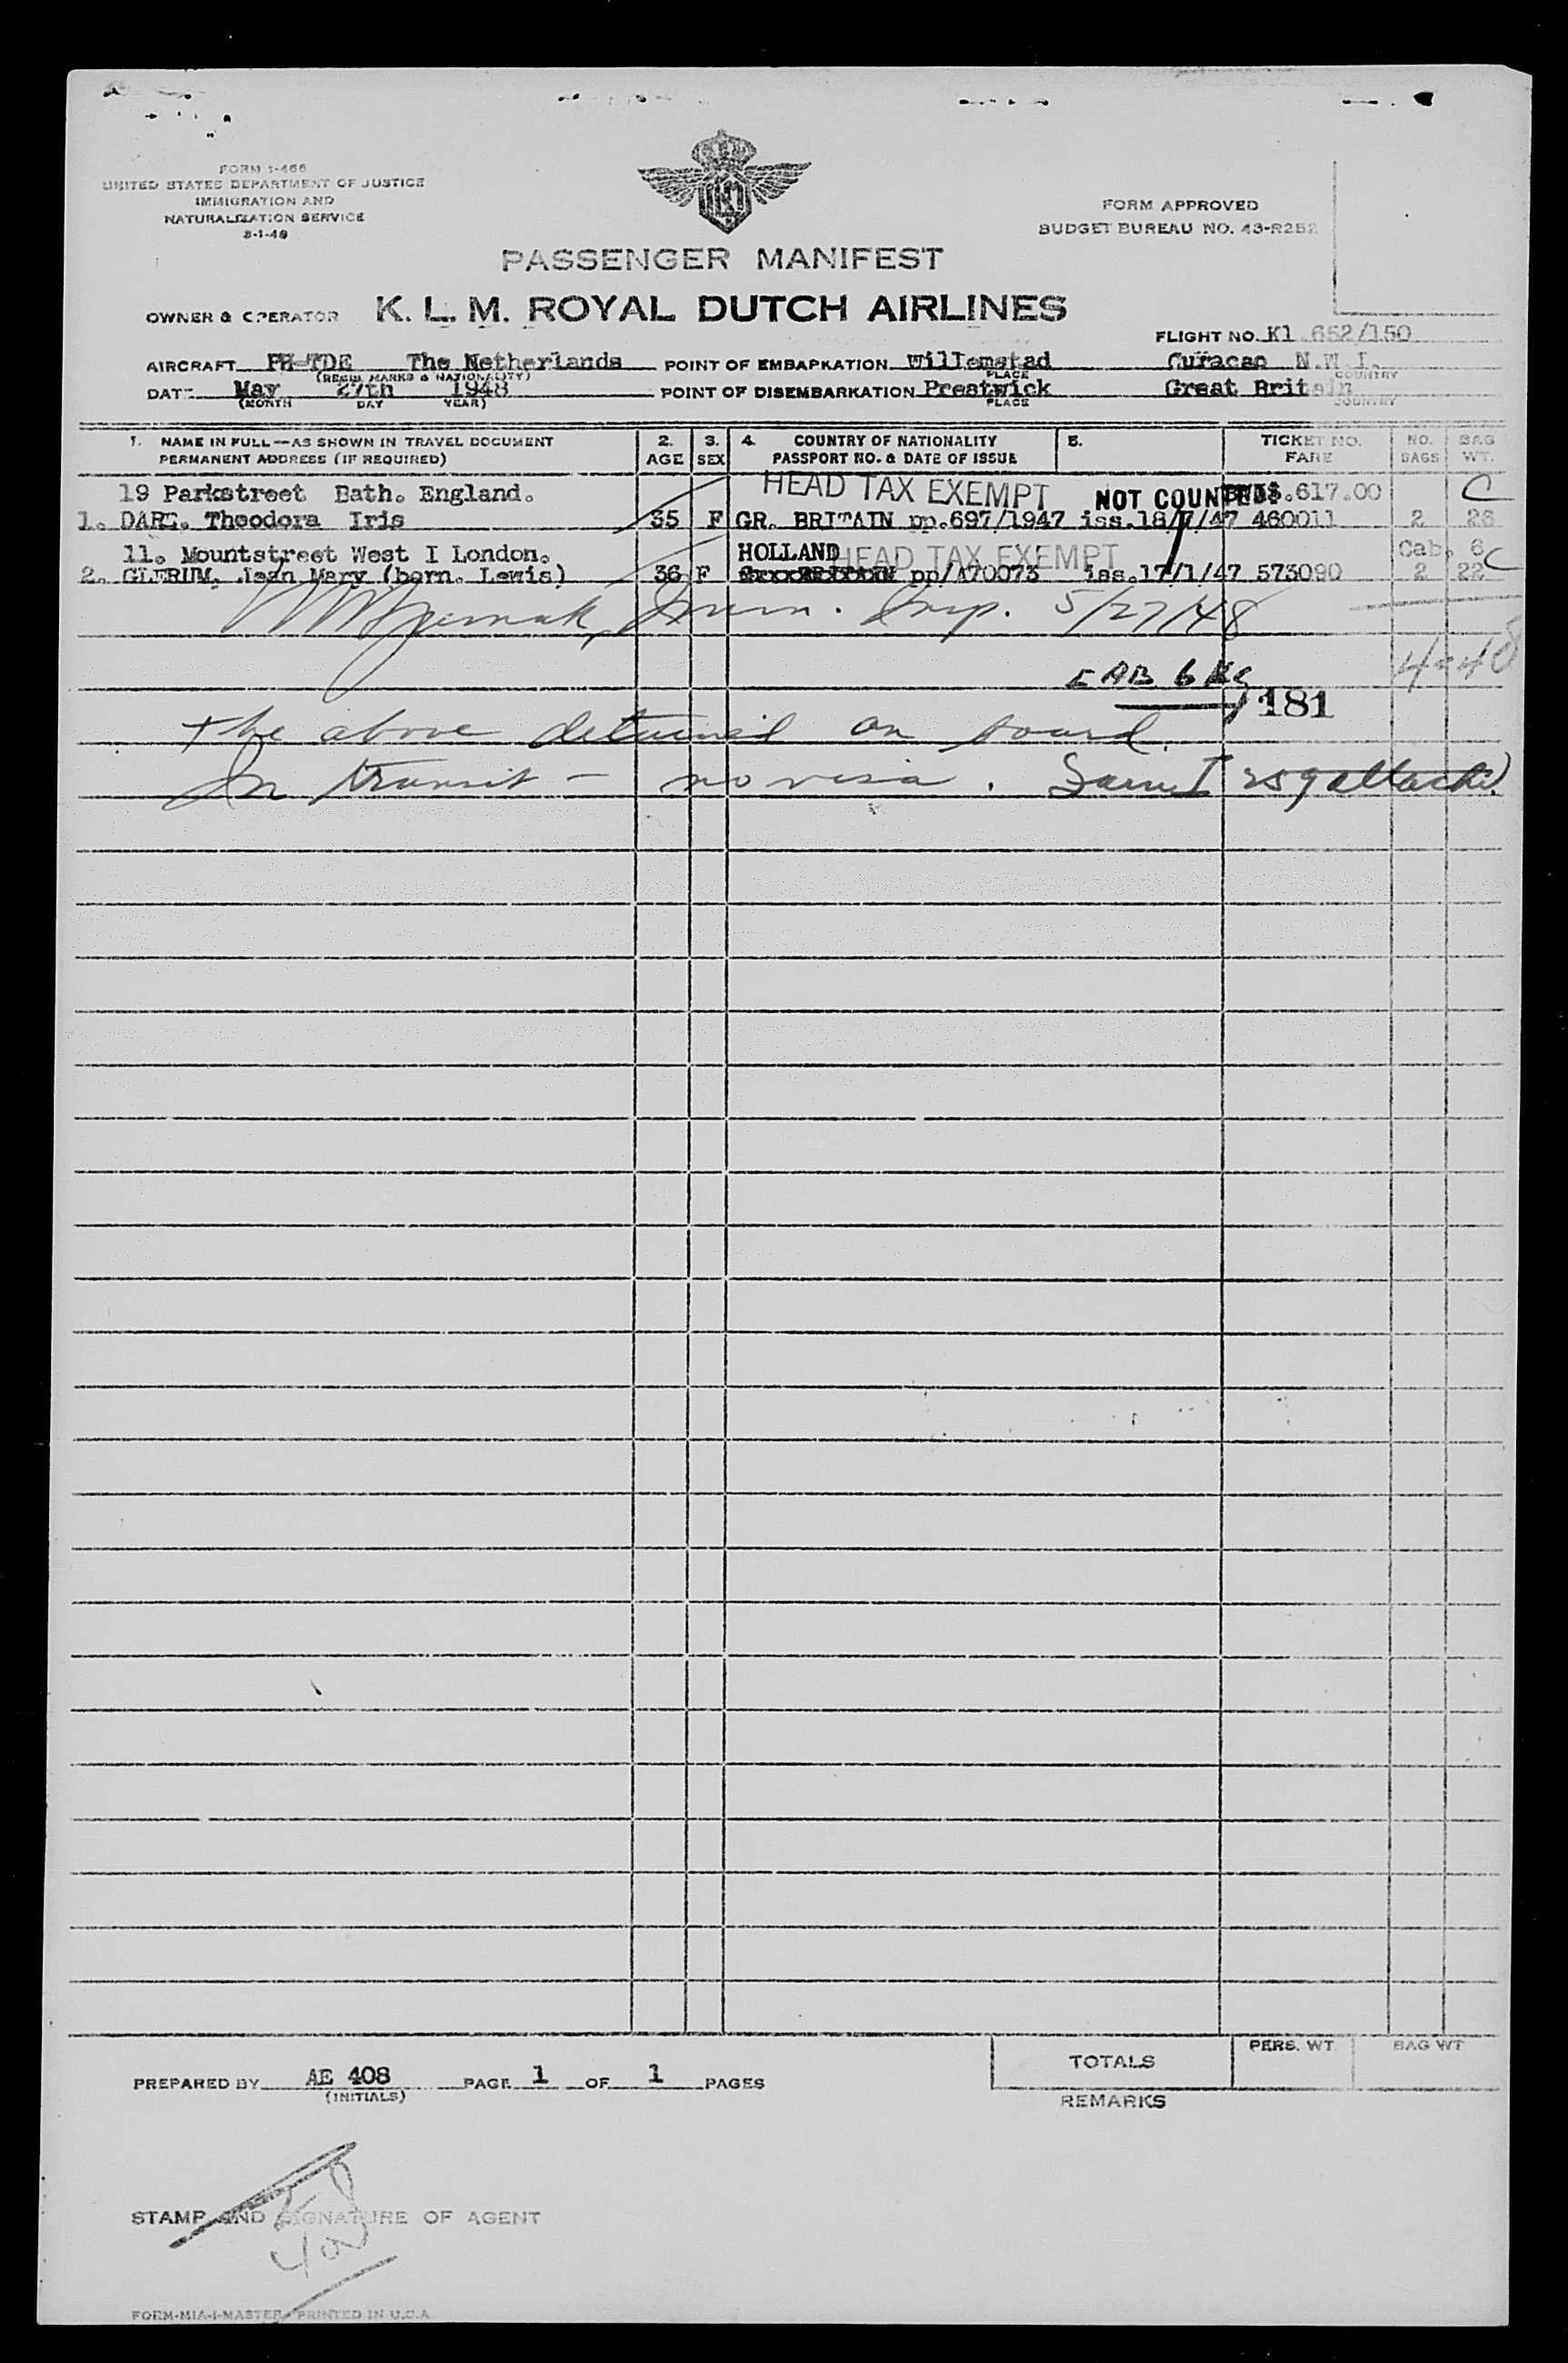 FORM I-466
UNITED STATES DEPARTMENT OF JUSTICE
IMMIGRATION AND
NATURALIZATION SERVICE
FORM APPROVED
BUDGET BUREAU NO. 43-R252
KLM
PASSENGER MANIFEST
OWNER & OPERATOR K. L. M. ROYAL DUTCH AIRLINES
FLIGHT NO. Kl 652/150
AIRCRAFT PH-TDE The Netherlands POINT OF EMBARKATION Willemstad Curacao N.W.I.
(REGIS. MARKS & NATIONALITY) PLACE COUNTRY
DATE May 27th 1948 POINT OF DISEMBARKATION Prestwick Great Britain
(MONTH DAY YEAR) PLACE COUNTRY
1. NAME IN FULL—AS SHOWN IN TRAVEL DOCUMENT 2. 3. 4. COUNTRY OF NATIONALITY 5. TICKET NO. NO. BAG
PERMANENT ADDRESS (IF REQUIRED) AGE SEX PASSPORT NO. & DATE OF ISSUE FARE BAGS WT.
19 Parkstreet Bath. England. HEAD TAX EXEMPT NOT COUNTED .617.00 C
1. Theodora Iris 35 F GR. BRITAIN pp.697/1947 iss.18/7/47 460011 2 26
11. Mountstreet West I London. HOLLAND HEAD TAX EXEMPT Cab. 6 C
2. GLERUM. Jean Mary (born. Lewis) 36 F pp/A70073 iss.17/1/47 573090 2 22
Imm. Insp. 5/27/48
4-48
CAB 6 KG
181
The above detained on board.
In transit - no visa.
PREPARED BY AE 408 PAGE 1 OF 1 PAGES
(INITIALS)
TOTALS PERS. WT. BAG WT
REMARKS
STAMP AND SIGNATURE OF AGENT
408
FORM-MIA-I-MASTER PRINTED IN U.S.A